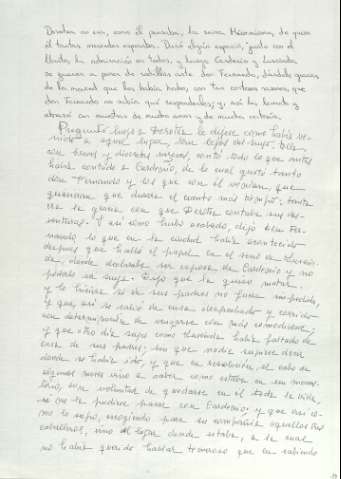 Dorotea no era, como él pensaba, la reina Micomicona, de quien
él tantas mercedes esperaba. Duró algún espacio, junto con el
llanto, la admiración en todos, y luego Cardenio y Luscinda
se fueron a poner de rodillas ante don Fernando, dándole gracias
de la merced que les había hecho, con tan corteses razones, que
don Fernando no sabía qué responderles; y, así, los levantó y
abrazó con muestras de mucho amor y de mucha cortesía.
Preguntó luego a Dorotea le dijese cómo había ve-
nido a aquel lugar, tan lejos del suyo. Ella,
con breves y discretas razones, contó todo lo que antes
había contado a Cardenio, de lo cual gustó tanto
don Fernando y los que con él venían, que
quisieran que durara el cuento más tiempo: tanta
era la gracia con que Dorotea contaba sus des-
venturas. Y así como hubo acabado, dijo don Fer-
nando lo que en la ciudad había acontecido
después que halló el papel en el seno de Luscin-
da, donde declaraba ser esposa de Cardenio y no
poderlo ser suya. Dijo que la quiso matar,
y lo hiciera si de sus padres no fuera impedido,
y que, así, se salió de casa despechado y corrido
con determinación de vengarse con más comodidad;
y que otro día supo como Luscinda había faltado de
casa de sus padres, sin que nadie supiese decir
dónde se había ido, y que, en resolución, al cabo de
algunos meses vino a saber como estaba en un monas-
terio, con voluntad de quedarse en él toda la vida,
si no la pudiese pasar con Cardenio; y que así co-
mo lo supo, escogiendo para su compañía aquellos tres
caballeros, vino al lugar donde estaba, a la cual
no había querido hablar, temeroso que en sabiendo